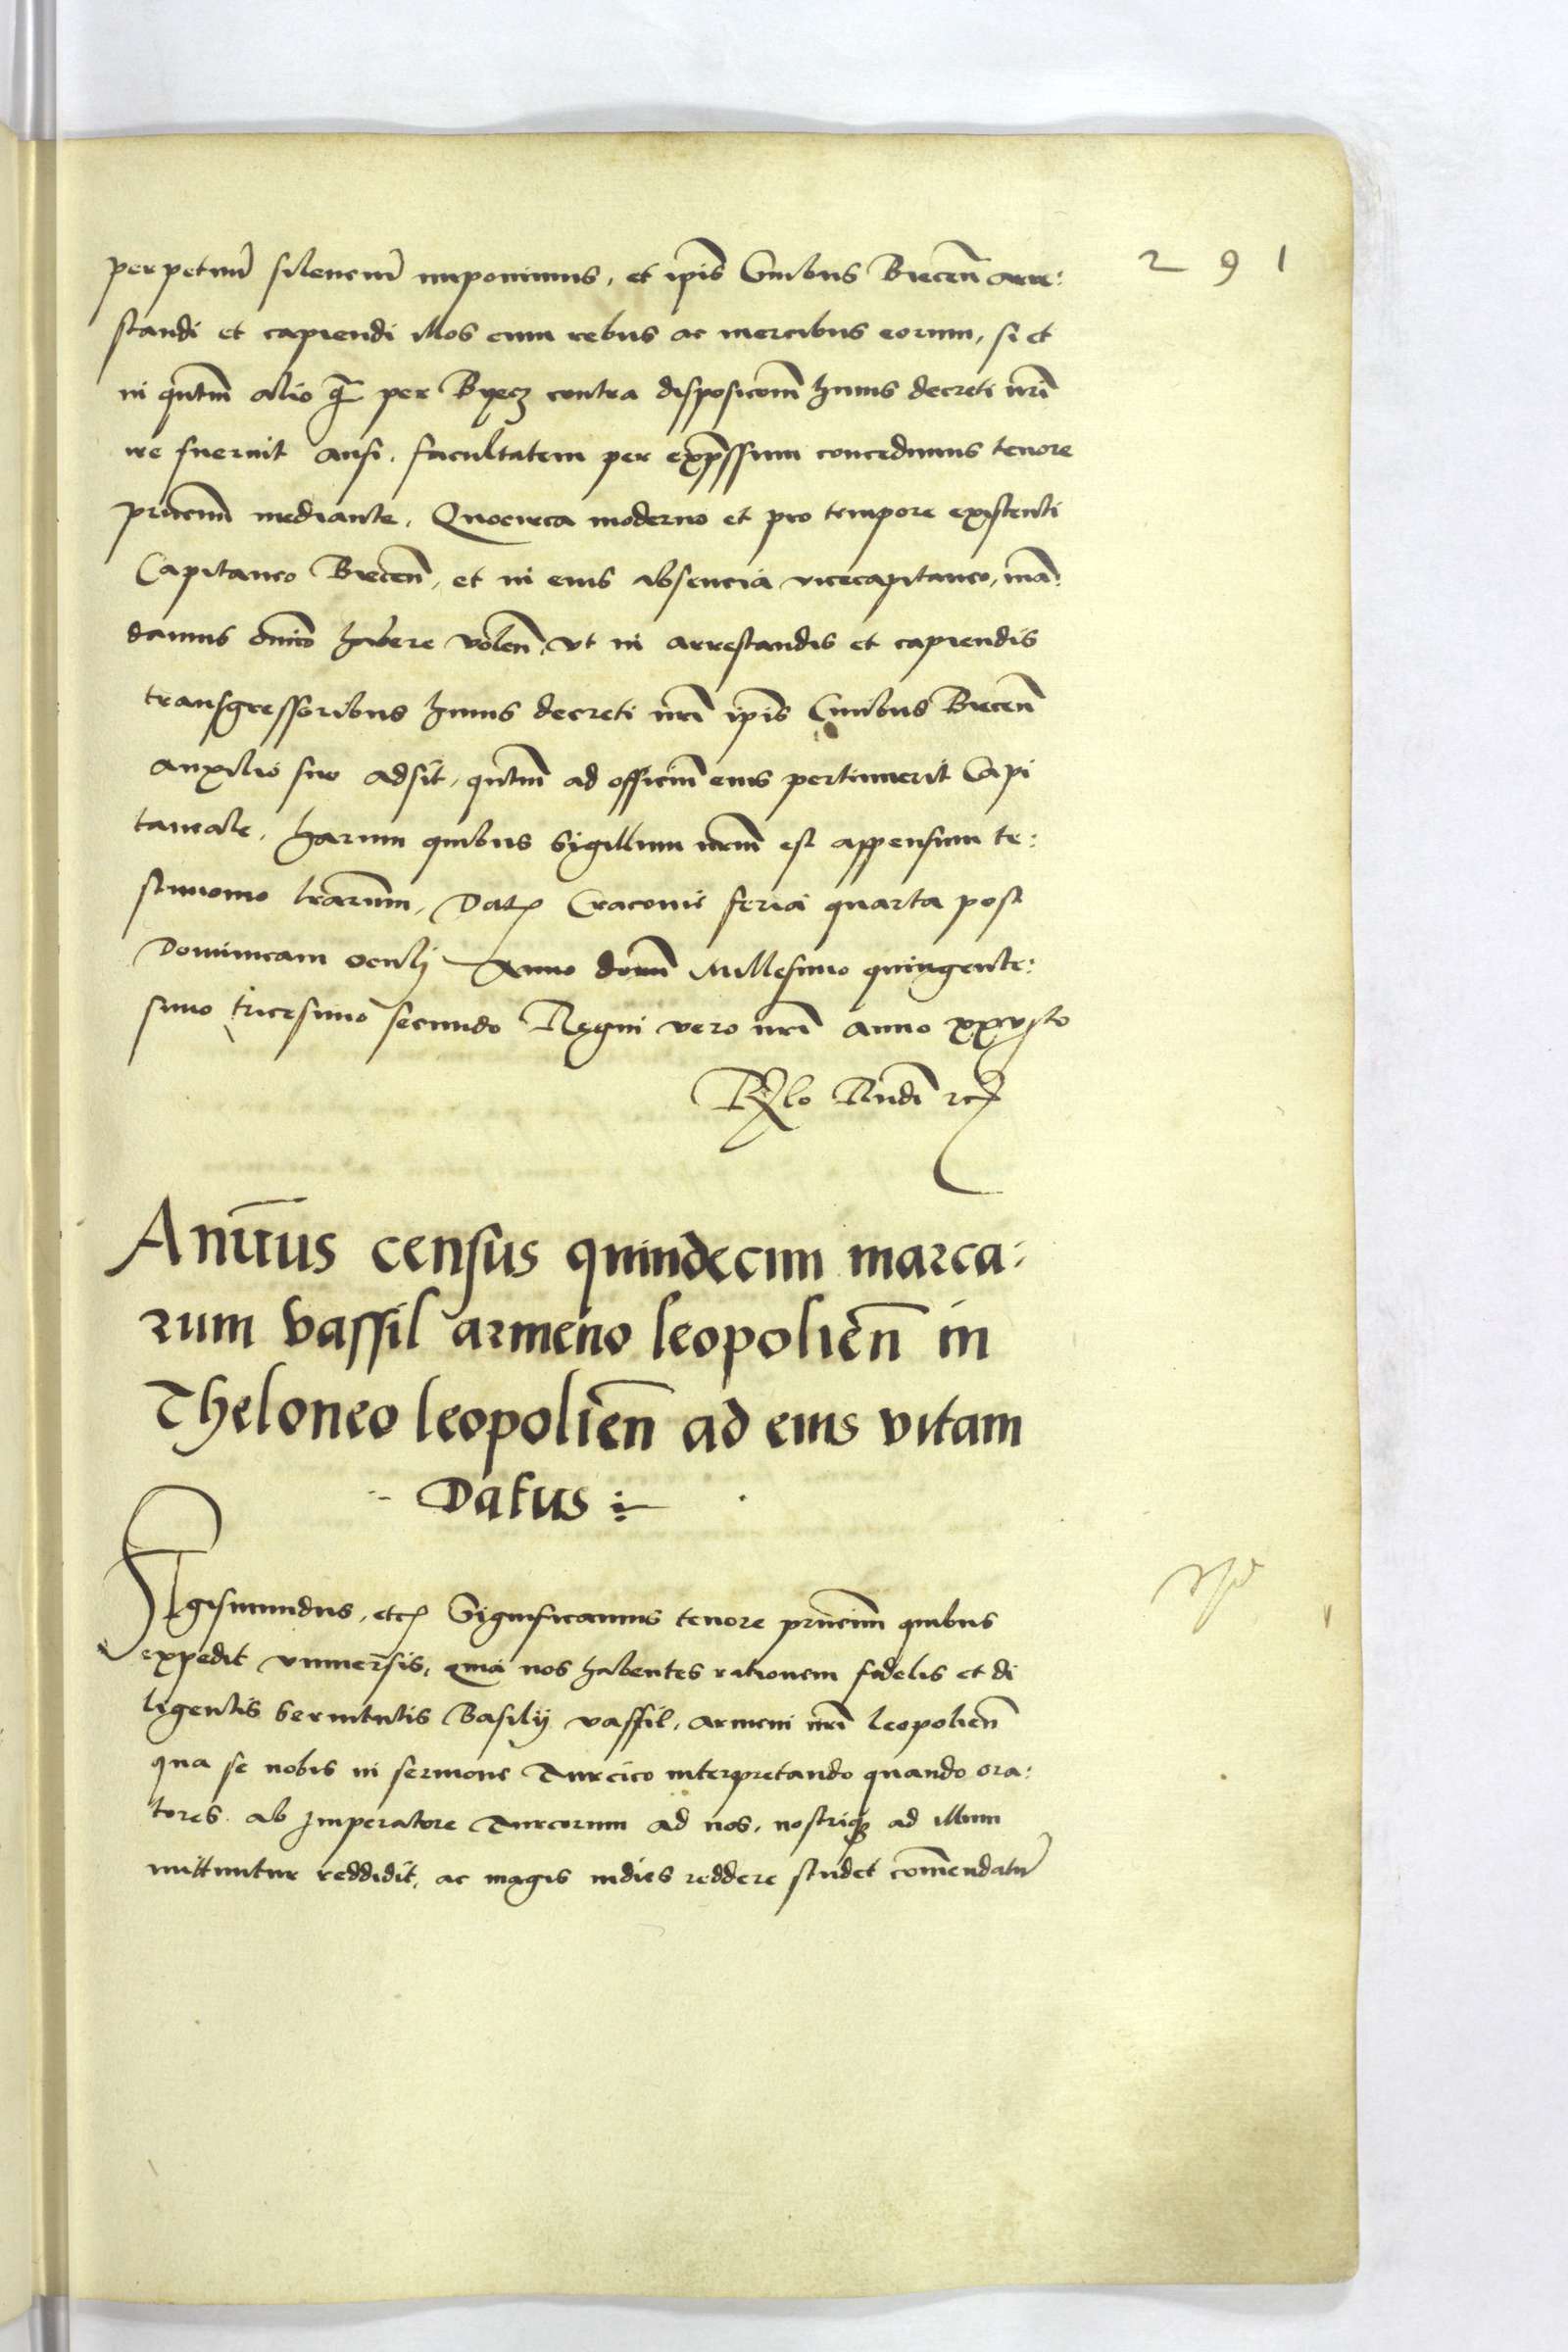 291
perpetuū silenciū imponimus, et ip̄is Ciuibus Biecen̄ arre:
standi et capiendi illos cum rebus ac mercibus eorum, si et
in qn̄tm̄ alio q̄ per Byecz contra disposicōm̄ huius decreti nr̄i
ire fuerint ausi, facultatem per exp̄ssum concedimus tenore
pn̄cium̄ mediante, Quocirca moderno et pro tempore existenti
Capitaneo Biecen̄, et in eius absencia vicecapitaneo, mā:
damus om̄ino habere volen̄, vt in arrestandis et capiendis
transgressoribus huius decreti nr̄i ip̄is Ciuibus Biecen̄
auxilio suo adsit, qn̄tm̄ ad officiū eius pertinuerit Capi
taneale, harum quibus Sigillum nr̄m̄ est appensum te:
stimonio lr̄arum̄, Dat Cracouie feria quarta post
Dominicam oculi Anno domī Millesimo quingente:
simo tricesimo secundo Regni vero nr̄i anno xxvjto
Annuus census quindecim marca:
rum vassil armeno leopolien̄ in
Theloneo leopolien̄ ad eius vitam
Datus
Sigismundus, etc Significamus tenore pn̄cium̄ quibus
expedit vniuersis, quia nos habentes rationem fidelis et di
ligentis seruitutis Basilij vassil, armeni nr̄i leopolien̄
qua se nobis in sermone Turcico interpretando quando ora:
tores ab Imperatore Turcorum ad nos, nostriq3 ad illum
mittuntur reddidit, ac magis indies reddere studet com̄endatū